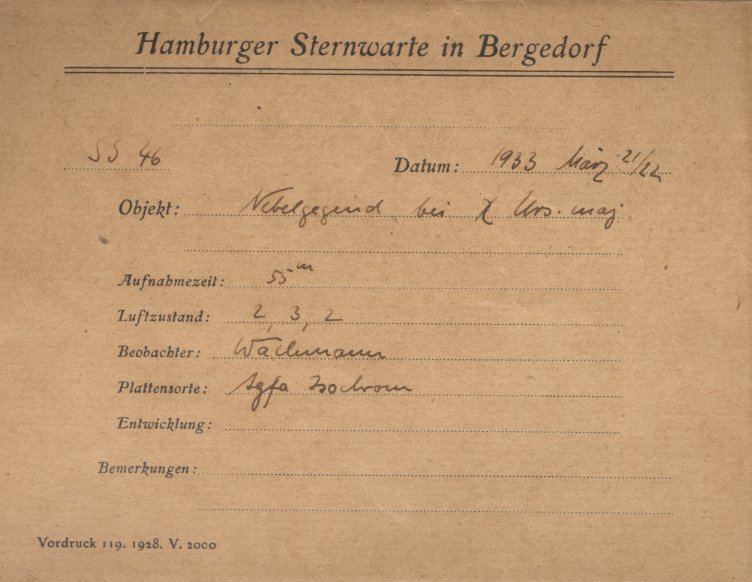 Hamburger Sternwarte in Bergedorf
SS 46
Datum: 1933 März 21/22
Objekt: Nebelgegend bei χ Urs. maj.
Aufnahmezeit: 55ᵐ
Luftzustand: 2, 3, 2
Beobachter: Wachmann
Plattensorte: Agfa Isochrom
Entwicklung:
Bemerkungen:
Vordruck 119. 1928. V. 2000